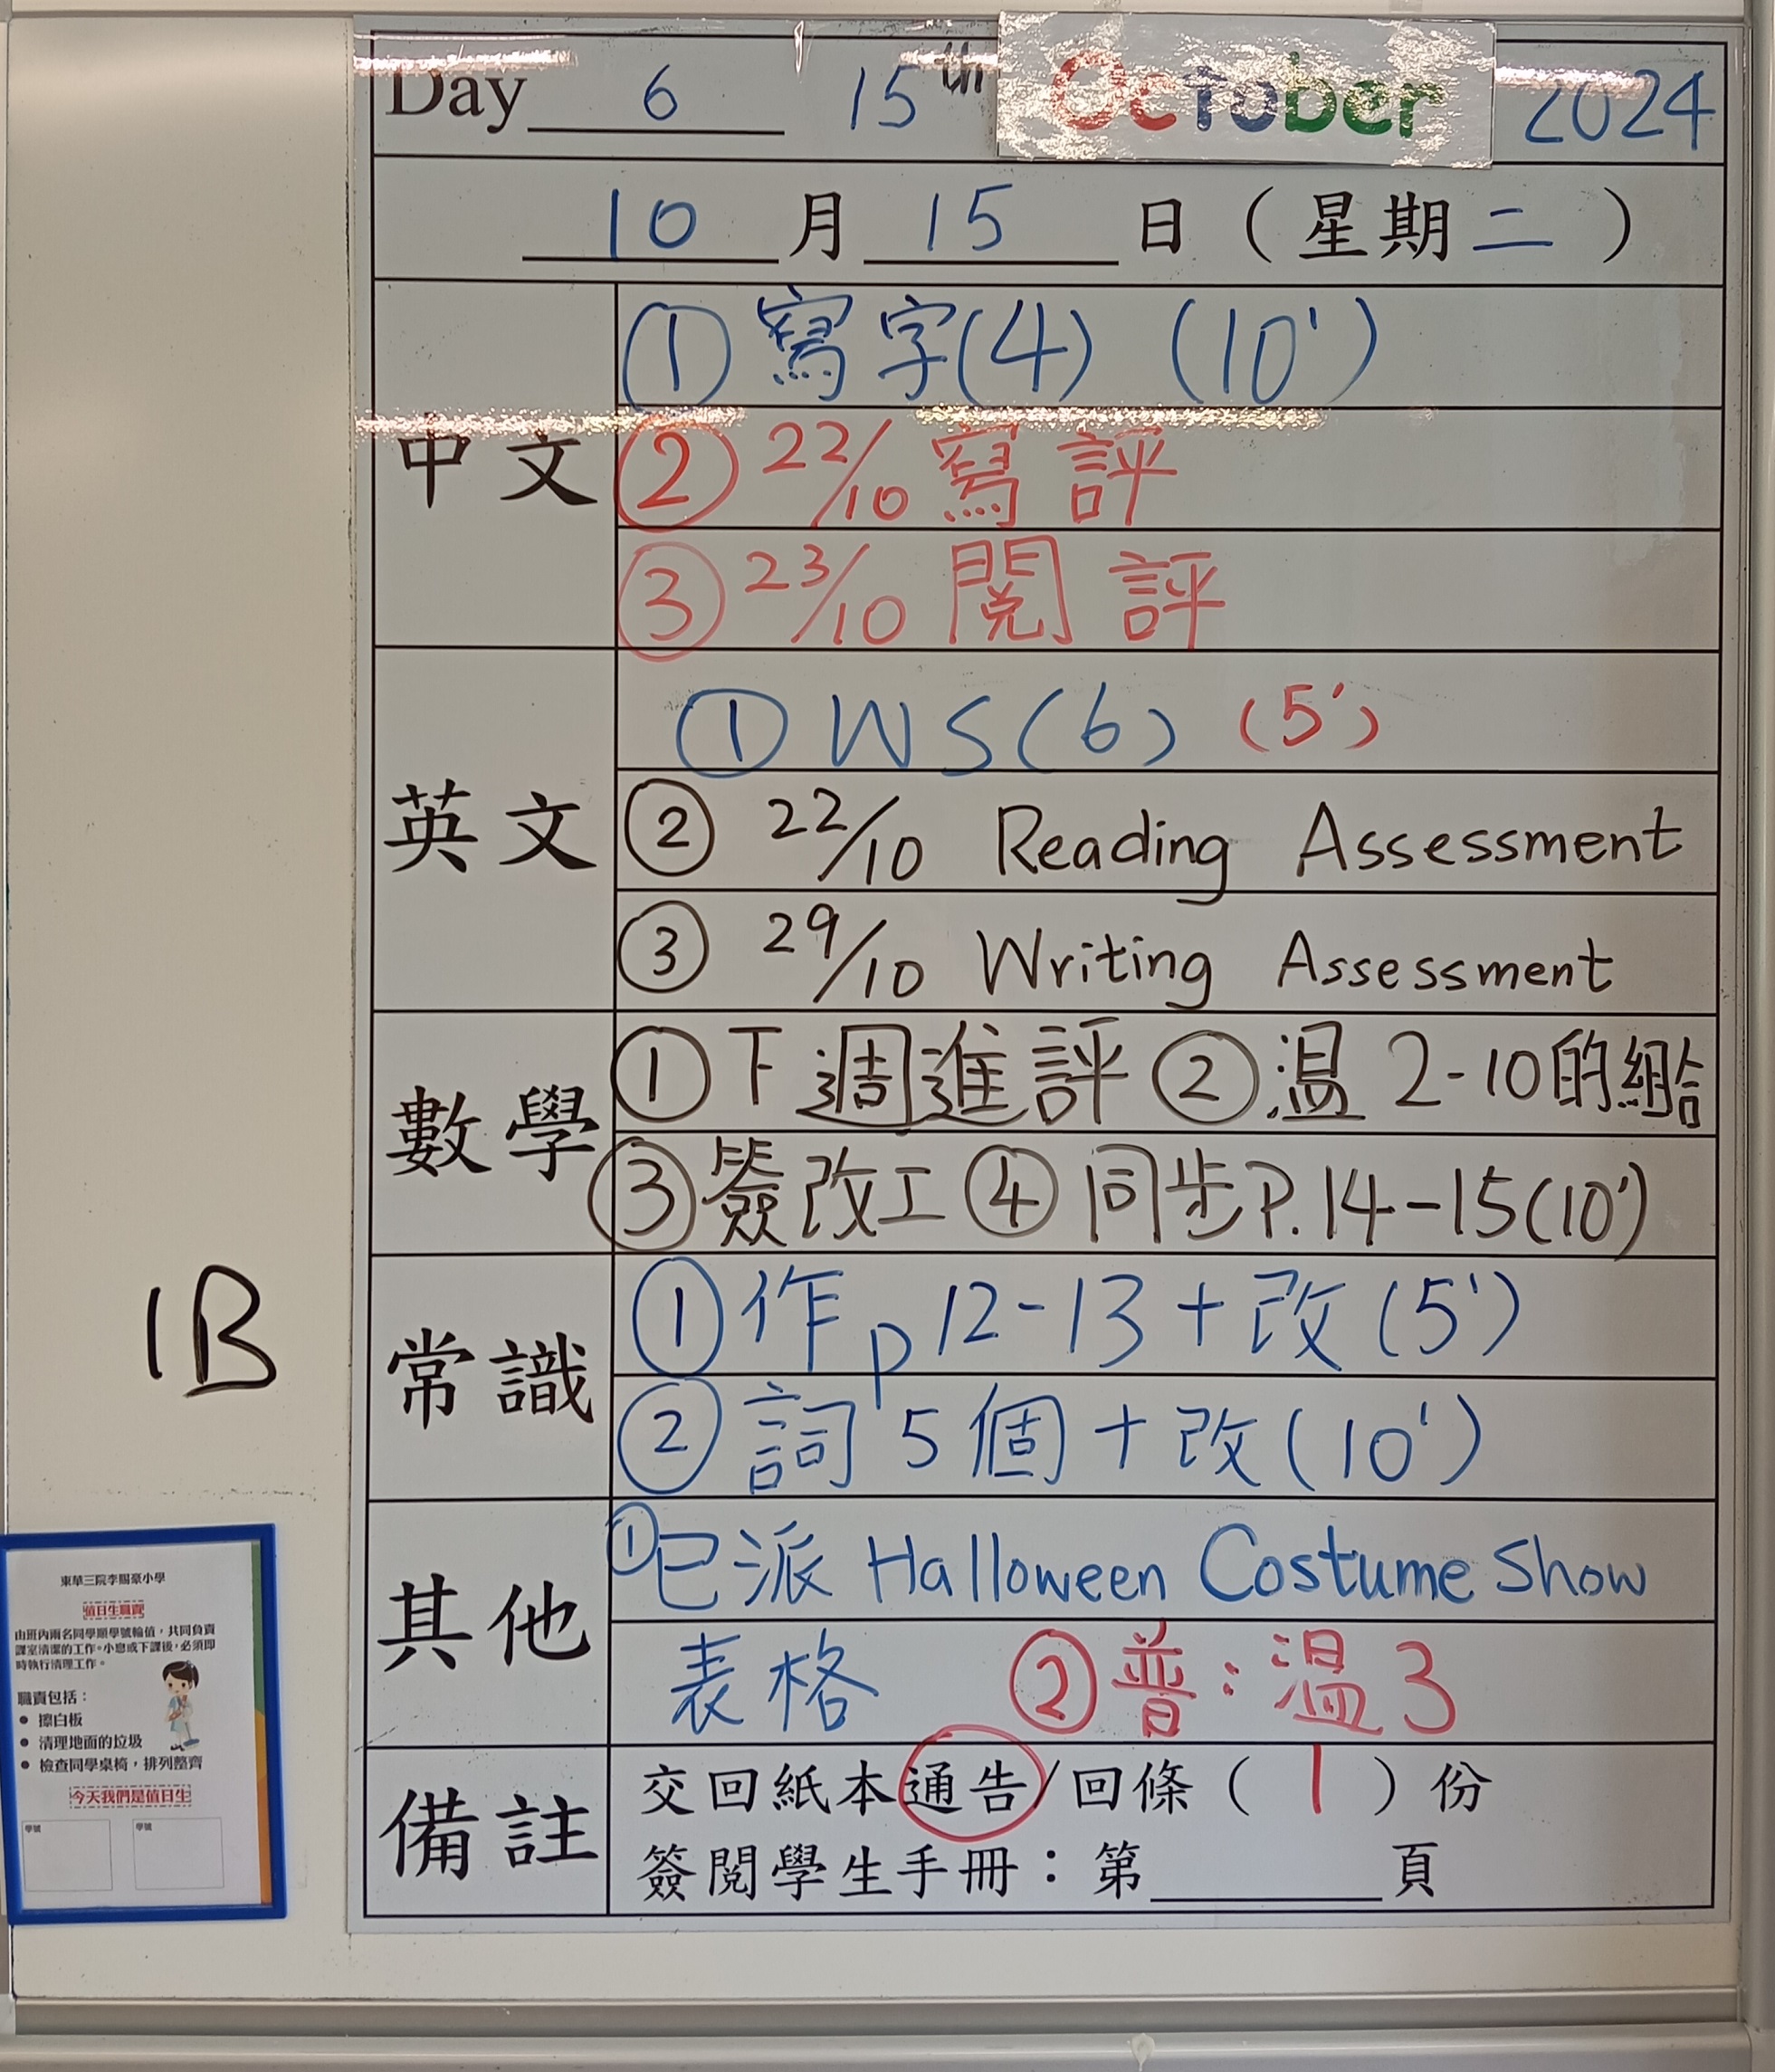 Day 6 15th October 2024
10 月 15 日 ( 星期 二 )
中文
① 寫字(4) (10')
② 22/10 寫評
③ 23/10 閱評
英文
① WS(6) (5')
② 22/10 Reading Assessment
③ 29/10 Writing Assessment
數學
① 下週進評 ② 温 2-10的組合
③ 簽改工 ④ 同步P.14-15(10')
常識
① 作 p12-13+改(5')
② 詞5個+改(10')
其他
① 已派 Halloween Costume Show
表格 ② 普:温3
備註
交回紙本通告/回條( 1 )份
簽閱學生手冊:第______頁
1B
東華三院李賜豪小學
值日生職責
由班內兩名同學順學號輪值,共同負責
課室清潔的工作。小息或下課後,必須即
時執行清理工作。
職責包括:
● 擦白板
● 清理地面的垃圾
● 檢查同學桌椅,排列整齊
今天我們是值日生
學號 學號